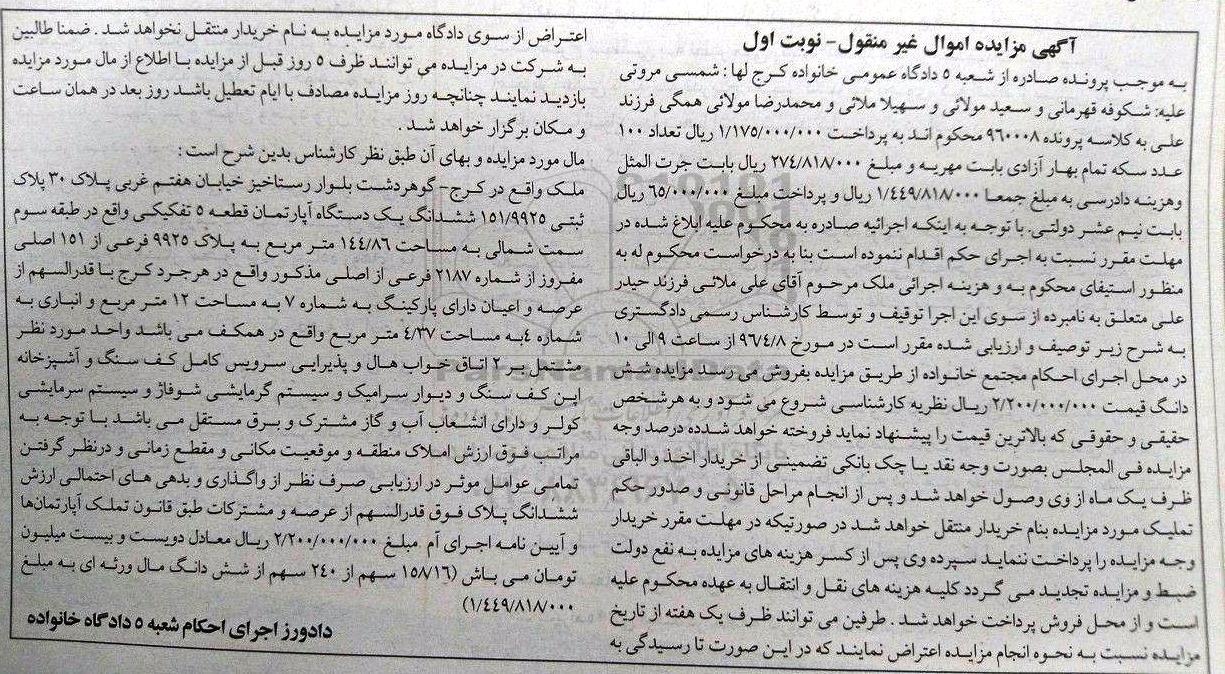 آگهی مزایده اموال غیر منقول- نوبت اول
به موجب پرونده صادره از شعبه ۵ دادگاه عمومی خانواده کرج لها : شمسی مروتی
علیه: شکوفه قهرمانی و سعید مولائی و سهیلا ملائی و محمدرضا مولائی همگی فرزند
علی به کلاسه پرونده ۹۶۰۰۰۸ محکوم اند به پرداخت ۱/۱۷۵/۰۰۰/۰۰۰ ریال تعداد ۱۰۰
عدد سکه تمام بهار آزادی بابت مهریه و مبلغ ۲۷۴/۸۱۸/۰۰۰ ریال بابت جرت المثل
وهزینه دادرسی به مبلغ جمعا ۱/۴۴۹/۸۱۸/۰۰۰ ریال و پرداخت مبلغ ۶۵/۰۰۰/۰۰۰ ریال
بابت نیم عشر دولتی. با توجه به اینکه اجرائیه صادره به محکوم علیه ابلاغ شده در
مهلت مقرر نسبت به اجرای حکم اقدام ننموده است بنا به درخواست محکوم له به
منظور استیفای محکوم به و هزینه اجرائی ملک مرحوم آقای علی ملائی فرزند حیدر
علی متعلق به نامبرده از سوی این اجرا توقیف و توسط کارشناس رسمی دادگستری
به شرح زیر توصیف و ارزیابی شده مقرر است در مورخ ۹۶/۴/۸ از ساعت ۹ الی ۱۰
در محل اجرای احکام مجتمع خانواده از طریق مزایده بفروش می رسد مزایده شش
دانگ قیمت ۲/۲۰۰/۰۰۰/۰۰۰ ریال نظریه کارشناسی شروع می شود و به هرشخص
حقیقی و حقوقی که بالاترین قیمت را پیشنهاد نماید فروخته خواهد شدده درصد وجه
مزایده فی المجلس بصورت وجه نقد یا چک بانکی تضمینی از خریدار اخذ و الباقی
ظرف یک ماه از وی وصول خواهد شد و پس از انجام مراحل قانونی و صدور حکم
تملیک مورد مزایده بنام خریدار منتقل خواهد شد در صورتیکه در مهلت مقرر خریدار
وجه مزایده را پرداخت ننماید سپرده وی پس از کسر هزینه های مزایده به نفع دولت
ضبط و مزایده تجدید می گردد کلیه هزینه های نقل و انتقال به عهده محکوم علیه
است و از محل فروش پرداخت خواهد شد . طرفین می توانند ظرف یک هفته از تاریخ
مزایده نسبت به نحوه انجام مزایده اعتراض نمایند که در این صورت تا رسیدگی به
اعتراض از سوی دادگاه مورد مزایده به نام خریدار منتقل نخواهد شد . ضمنا طالبین
به شرکت در مزایده می توانند ظرف ۵ روز قبل از مزایده با اطلاع از مال مورد مزایده
بازدید نمایند چنانچه روز مزایده مصادف با ایام تعطیل باشد روز بعد در همان ساعت
و مکان برگزار خواهد شد .
مال مورد مزایده و بهای آن طبق نظر کارشناس بدین شرح است :
ملک واقع در کرج- گوهردشت بلوار رستاخیز خیابان هفتم غربی پلاک ۳۰ پلاک
ثبتی ۱۵۱/۹۹۲۵ ششدانگ یک دستگاه آپارتمان قطعه ۵ تفکیکی واقع در طبقه سوم
سمت شمالی به مساحت ۱۴۴/۸۶ متر مربع به پلاک ۹۹۲۵ فرعی از ۱۵۱ اصلی
مفروز از شماره ۲۱۸۷ فرعی از اصلی مذکور واقع در هرجرد کرج با قدرالسهم از
عرصه و اعیان دارای پارکینگ به شماره ۷ به مساحت ۱۲ متر مربع و انباری به
شماره ۴به مساحت ۴/۳۷ متر مربع واقع در همکف می باشد واحد مورد نظر
مشتمل بر ۲ اتاق خواب هال و پذیرایی سرویس کامل کف سنگ و آشپزخانه
این کف سنگ و دیوار سرامیک و سیستم گرمایشی شوفاژ و سیستم سرمایشی
کولر و دارای انشعاب آب و گاز مشترک و برق مستقل می باشد با توجه به
مراتب فوق ارزش املاک منطقه و موقعیت مکانی و مقطع زمانی و درنظر گرفتن
تمامی عوامل موثر در ارزیابی صرف نظر از واگذاری و بدهی های احتمالی ارزش
ششدانگ پلاک فوق قدرالسهم از عرصه و مشترکات طبق قانون تملک آپارتمان‌ها
و آیین نامه اجرای آم مبلغ ۲/۲۰۰/۰۰۰/۰۰۰ ریال معادل دویست و بیست میلیون
تومان می باش (۱۵۸/۱۶ سهم از ۲۴۰ سهم از شش دانگ مال ورثه ای به مبلغ
۱/۴۴۹/۸۱۸/۰۰۰)
دادورز اجرای احکام شعبه ۵ دادگاه خانواده